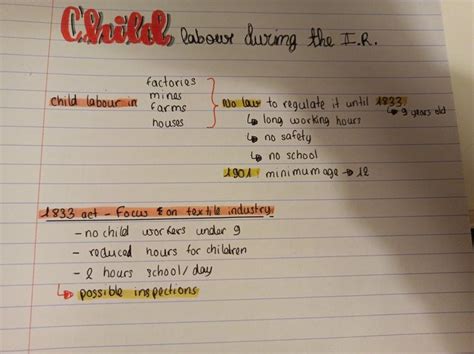 Child labour during the I.R.
factories
mines
child labour in farms
houses
No law to regulate it until 1833
↳ 9 years old
↳ long working hours
↳ no safety
↳ no school
1901 minimum age → 12
1833 act - Focus on textile industry
- no child workers under 9
- reduced hours for children
- 2 hours school/day
↳ possible inspections